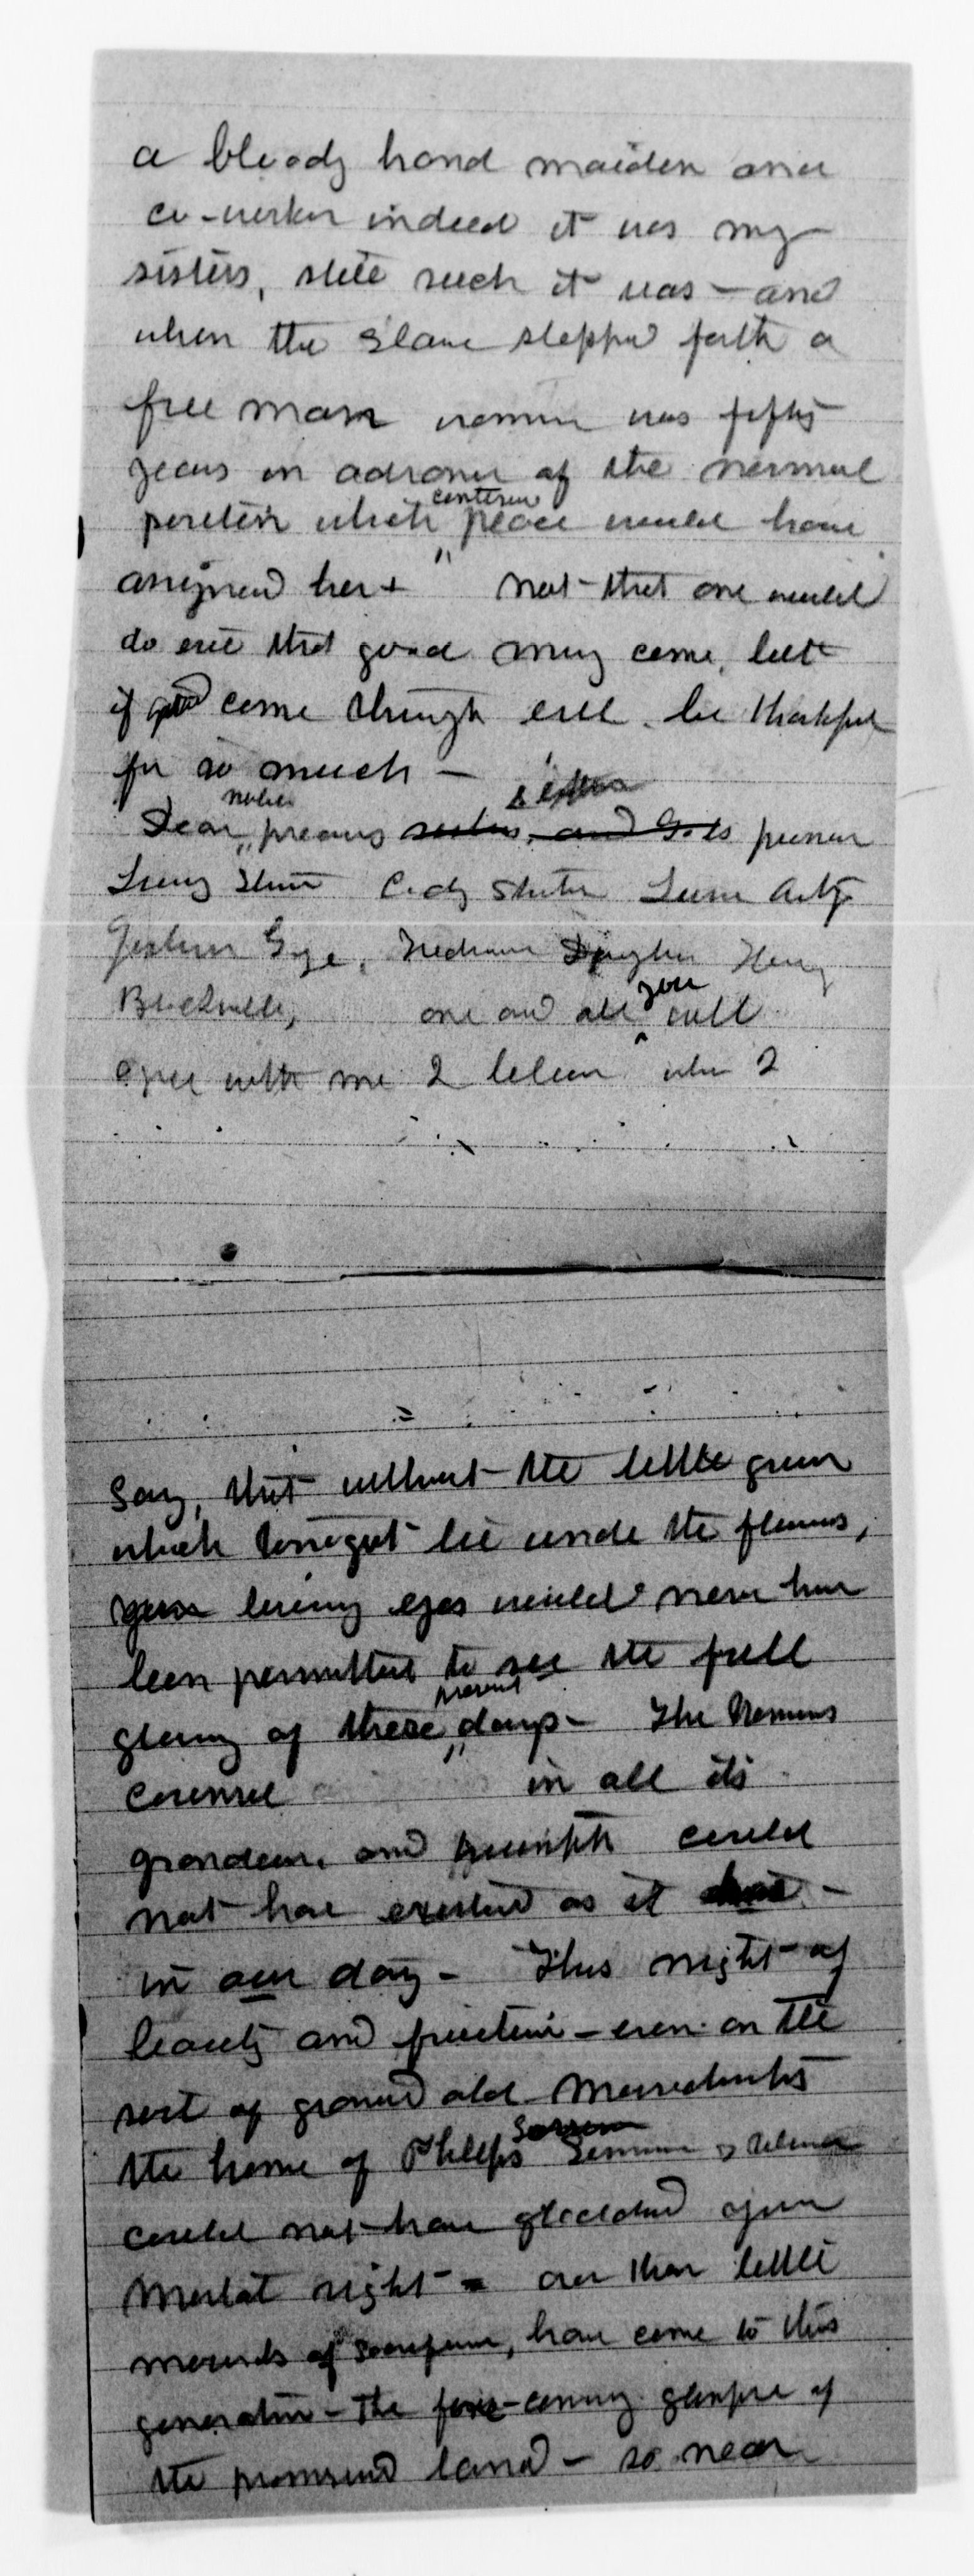 a bloody hand maiden and
co-worker indeed it was my
sisters, still such it was - and
when the slave stepped forth a
free man woman was fifty
years in advance of the normal
continued
position which peace would have
assigned her + not that one would
do evil that good may come, but
if good come through evil. be thankful
for so much -
noble
Dear, precious sisters, and God's pioneer
Lucy Stone Cady Stanton Susan Anthy
Frederick Douglass Henry
Blackwell, one and all you will
agree with me I believe when I
say, that without the little green
which tonight lie under the flowers,
your living eyes would never have
been permitted to see the full
present
glory of these days - The Womans
Council in all its
grandeur, and triumph could
not have existed as it has -
in our day - This night of
beauty and fruition - even on the
soil of grand old Massachusetts
the home of Phillips Sumner & Wilson
could not have gladdened your
mortal sight - over these little
mounds of sacrifice, have come to this
generation - The fore-coming glimpse of
the promised land - so near